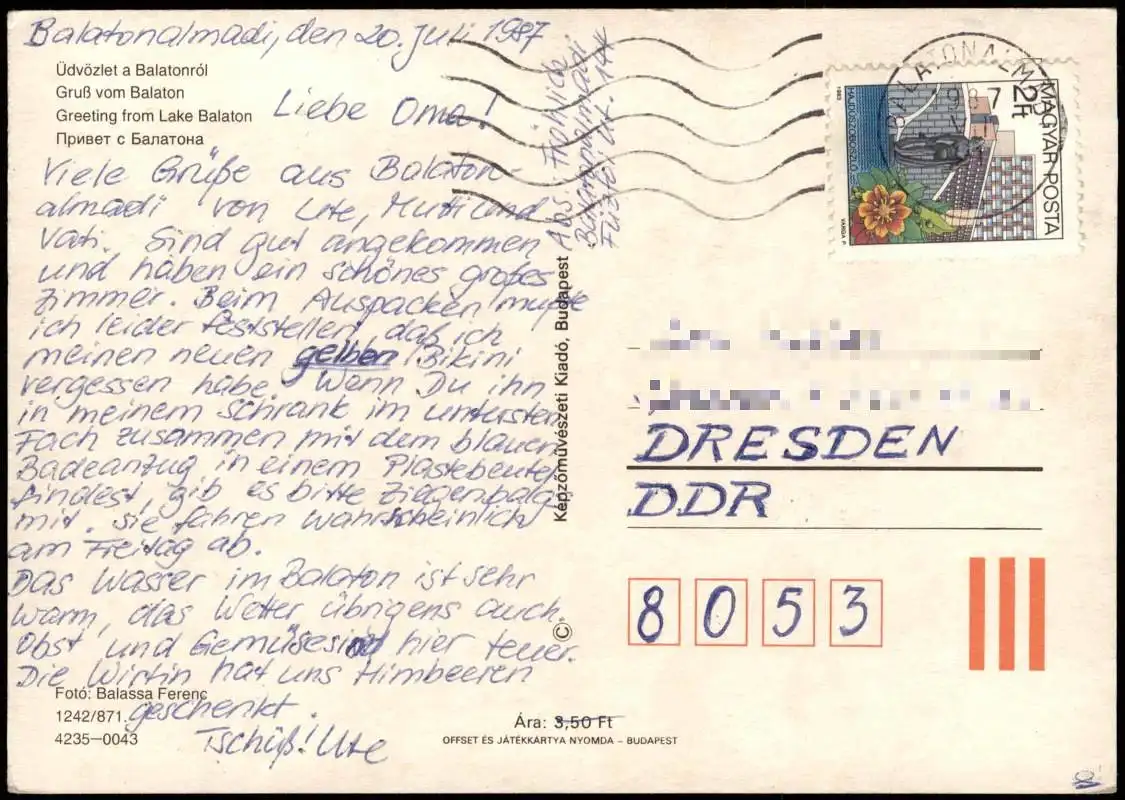 Balatonalmadi, den 20. Juli 1987
Üdvözlet a Balatonról
Gruß vom Balaton
Greeting from Lake Balaton
Привет с Балатона
Liebe Oma!
Viele Grüße aus Balaton-
almadi von Ute, Mutti und
Vati. Sind gut angekommen
und haben ein schönes großes
Zimmer. Beim Auspacken mußte
ich leider feststellen, daß ich
meinen neuen gelben Bikini
vergessen habe. Wenn Du ihn
in meinem Schrank im untersten
Fach zusammen mit dem blauen
Badeanzug in einem Plastebeutel
findest, gib es bitte Ziegenbalg
mit. Sie fahren wahrscheinlich
am Freitag ab.
Das Wasser im Balaton ist sehr
warm, das Wetter übrigens auch.
Obst und Gemüse sind hier teuer.
Die Wirtin hat uns Himbeeren
geschenkt.
Tschüß! Ute
Fotó: Balassa Ferenc
1242/871.
4235—0043
Abs. Fröhlich
Balatonalmadi
ut. 14
Képzőművészeti Kiadó, Budapest
©
Ára: 3,50 Ft
OFFSET ÉS JÁTÉKKÁRTYA NYOMDA – BUDAPEST
BALATONALM
987
2Ft
MAGYAR POSTA
HAJDÚSZOBOSZLÓ
1983
VARGA P.
DRESDEN
DDR
8053
8